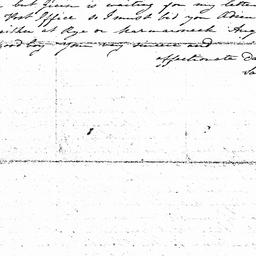 but Green is waiting for my letter
Post Office so I must bid you Adieu
either at Rye or Mamaroneck Aug
good bye your very sincere and
affectionate Da
Sa